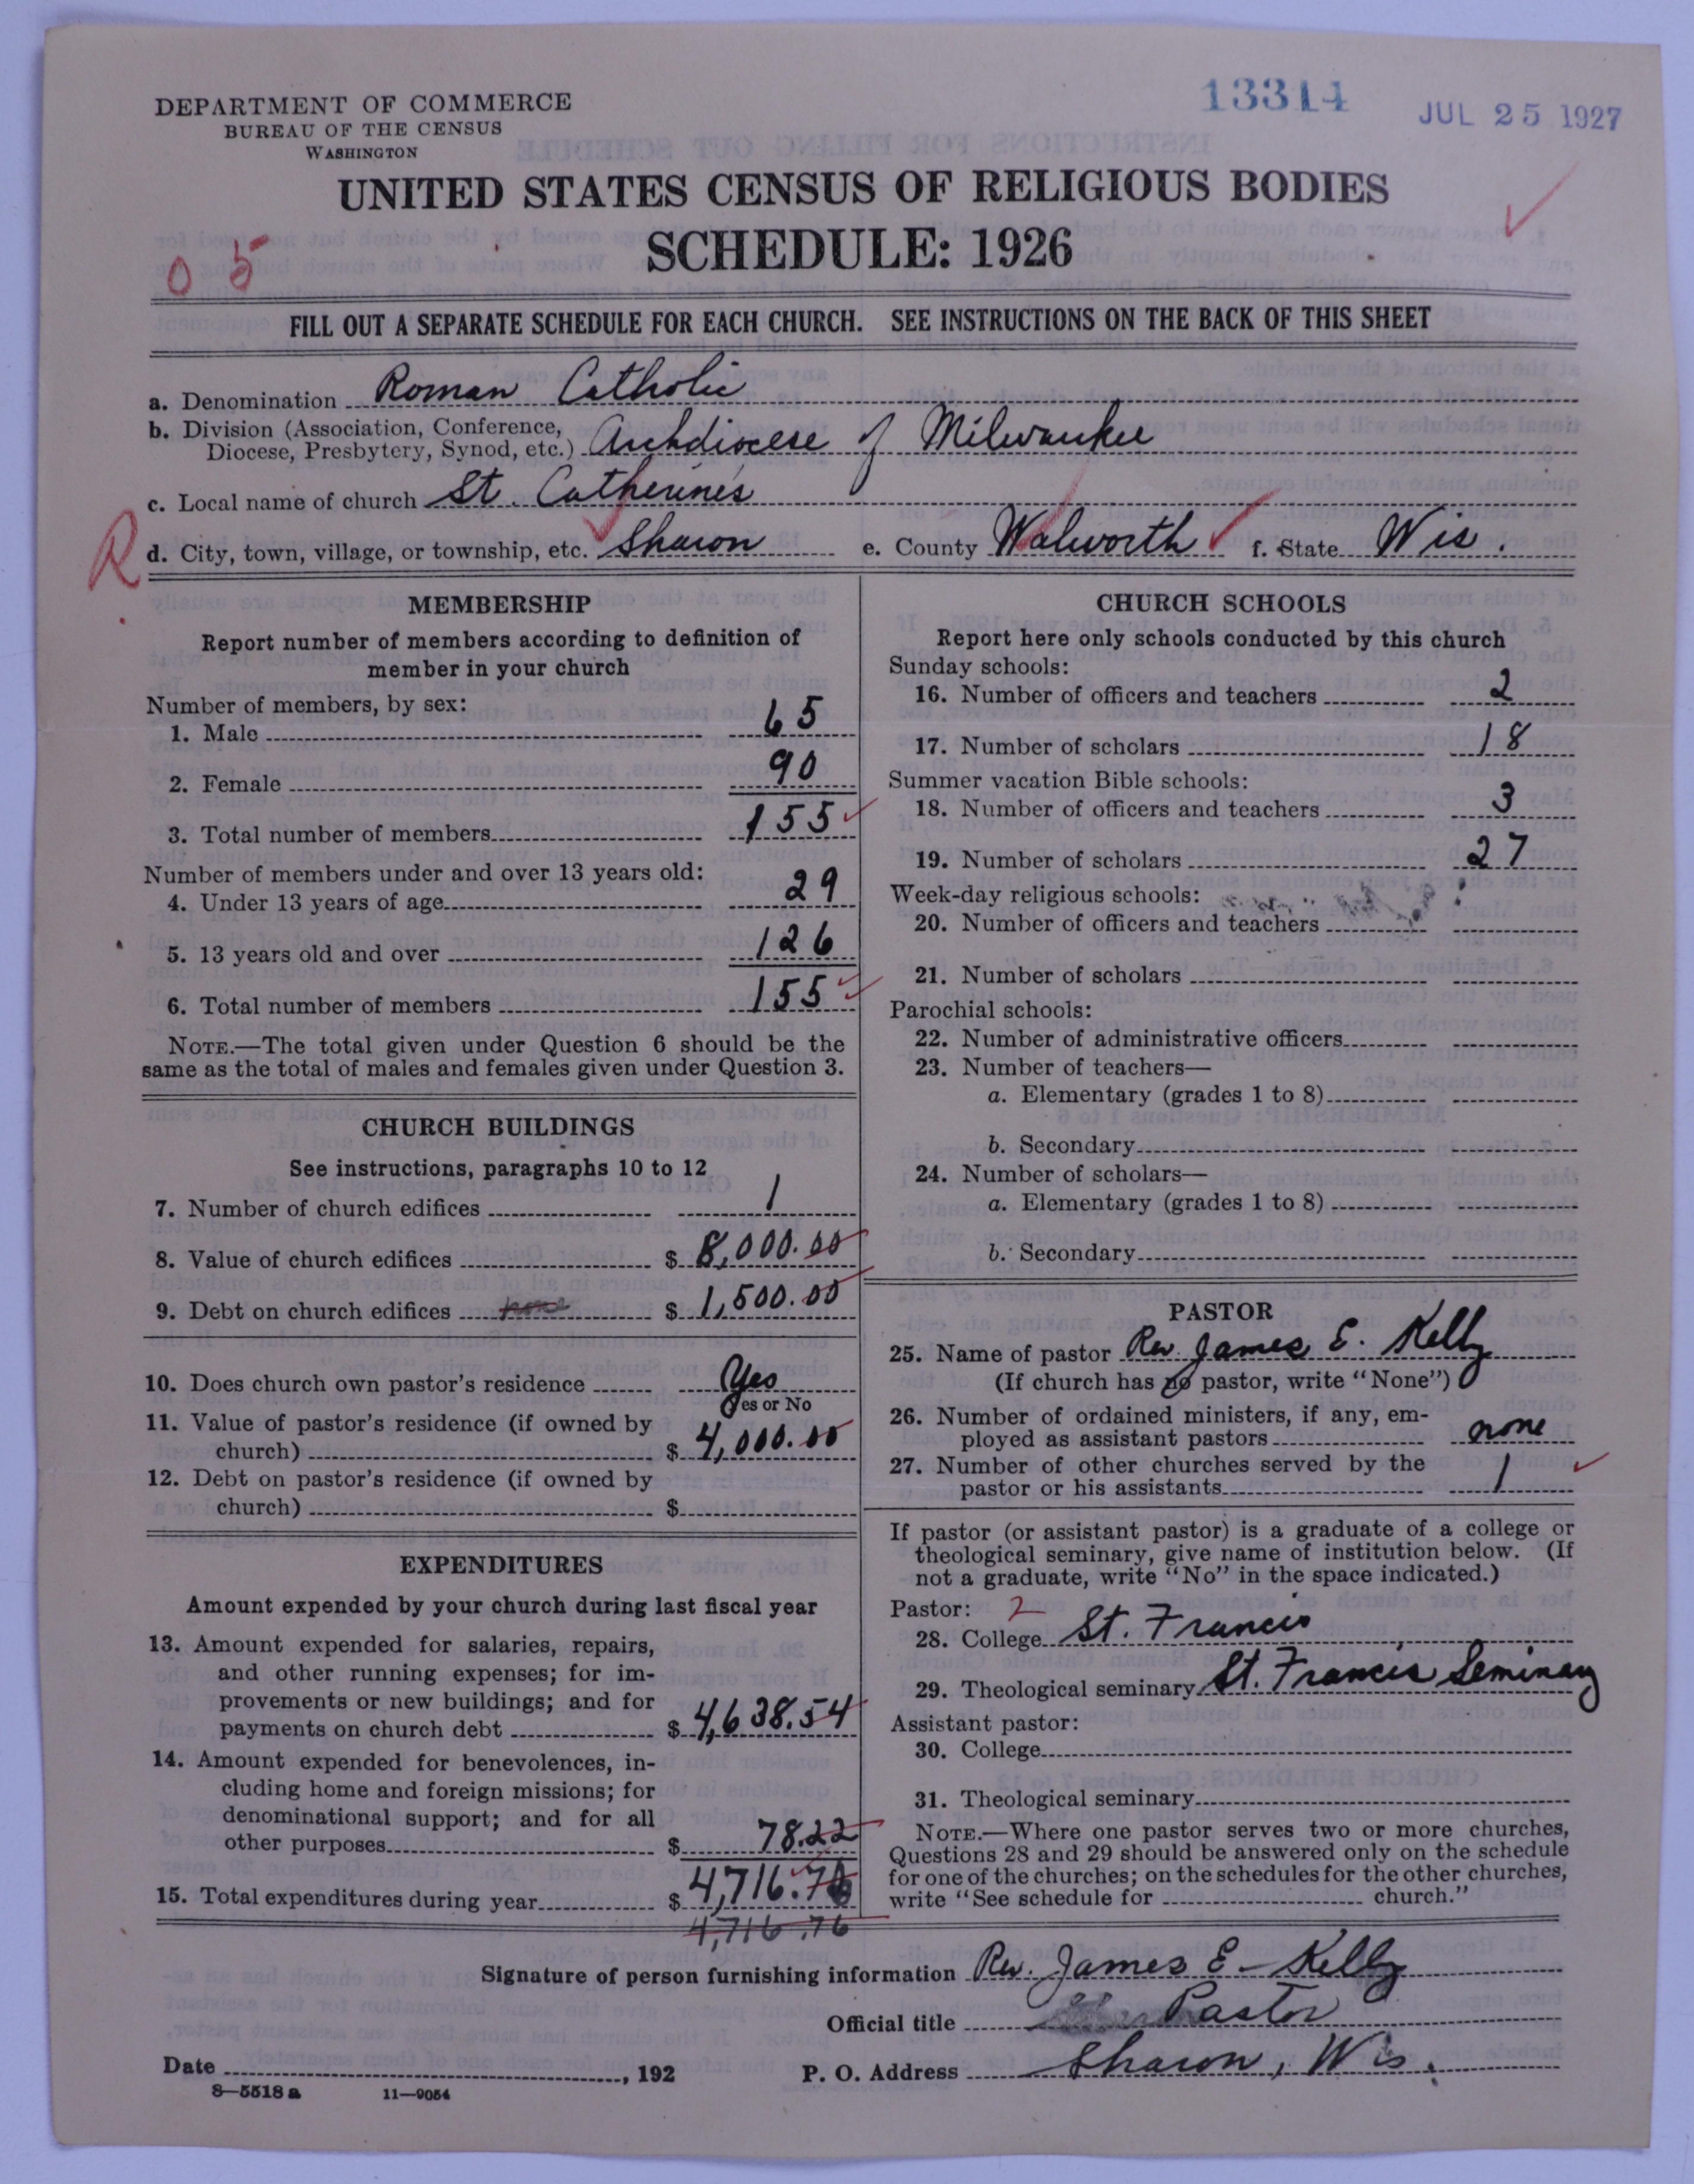 DEPARTMENT OF COMMERCE
BUREAU OF THE CENSUS
WASHINGTON
13314
JUL 25 1927
UNITED STATES CENSUS OF RELIGIOUS BODIES
SCHEDULE: 1926
0 5
FILL OUT A SEPARATE SCHEDULE FOR EACH CHURCH. SEE INSTRUCTIONS ON THE BACK OF THIS SHEET
a. Denomination Roman Catholic
b. Division (Association, Conference,
Diocese, Presbytery, Synod, etc.) Archdiocese of Milwaukee
c. Local name of church St Catherine's
R
d. City, town, village, or township, etc. Sharon e. County Walworth f. State Wis.
MEMBERSHIP
Report number of members according to definition of
member in your church
Number of members, by sex:
1. Male 65
2. Female 90
3. Total number of members 155
Number of members under and over 13 years old:
4. Under 13 years of age 29
5. 13 years old and over 126
6. Total number of members 155
NOTE.—The total given under Question 6 should be the
same as the total of males and females given under Question 3.
CHURCH BUILDINGS
See instructions, paragraphs 10 to 12
7. Number of church edifices 1
8. Value of church edifices $ 8,000.00
9. Debt on church edifices none $ 1,500.00
10. Does church own pastor's residence Yes
Yes or No
11. Value of pastor's residence (if owned by
church) $ 4,000.00
12. Debt on pastor's residence (if owned by
church) $
EXPENDITURES
Amount expended by your church during last fiscal year
13. Amount expended for salaries, repairs,
and other running expenses; for im-
provements or new buildings; and for
payments on church debt $ 4,638.54
14. Amount expended for benevolences, in-
cluding home and foreign missions; for
denominational support; and for all
other purposes $ 78.22
15. Total expenditures during year $ 4,716.76
4,716.76
CHURCH SCHOOLS
Report here only schools conducted by this church
Sunday schools:
16. Number of officers and teachers 2
17. Number of scholars 18
Summer vacation Bible schools:
18. Number of officers and teachers 3
19. Number of scholars 27
Week-day religious schools:
20. Number of officers and teachers
21. Number of scholars
Parochial schools:
22. Number of administrative officers
23. Number of teachers—
a. Elementary (grades 1 to 8)
b. Secondary
24. Number of scholars—
a. Elementary (grades 1 to 8)
b. Secondary
PASTOR
25. Name of pastor Rev. James E. Kelly
(If church has no pastor, write "None")
26. Number of ordained ministers, if any, em-
ployed as assistant pastors none
27. Number of other churches served by the
pastor or his assistants 1
If pastor (or assistant pastor) is a graduate of a college or
theological seminary, give name of institution below. (If
not a graduate, write "No" in the space indicated.)
Pastor: 2
28. College St. Francis
29. Theological seminary St. Francis Seminary
Assistant pastor:
30. College
31. Theological seminary
NOTE.—Where one pastor serves two or more churches,
Questions 28 and 29 should be answered only on the schedule
for one of the churches; on the schedules for the other churches,
write "See schedule for church."
Signature of person furnishing information Rev. James E. Kelly
Official title Pastor
Date , 192 P. O. Address Sharon, Wis.
8—5518 a 11—9054